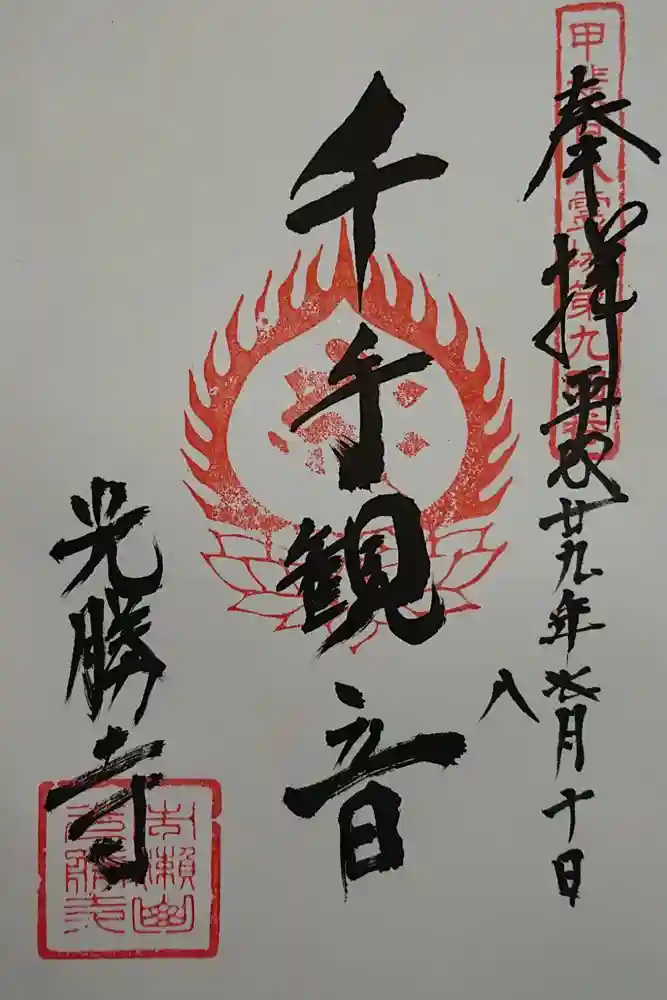 甲斐百八霊場第九
奉拝 平成廿九年 月十日
八
千手観音
光勝寺
瀬山